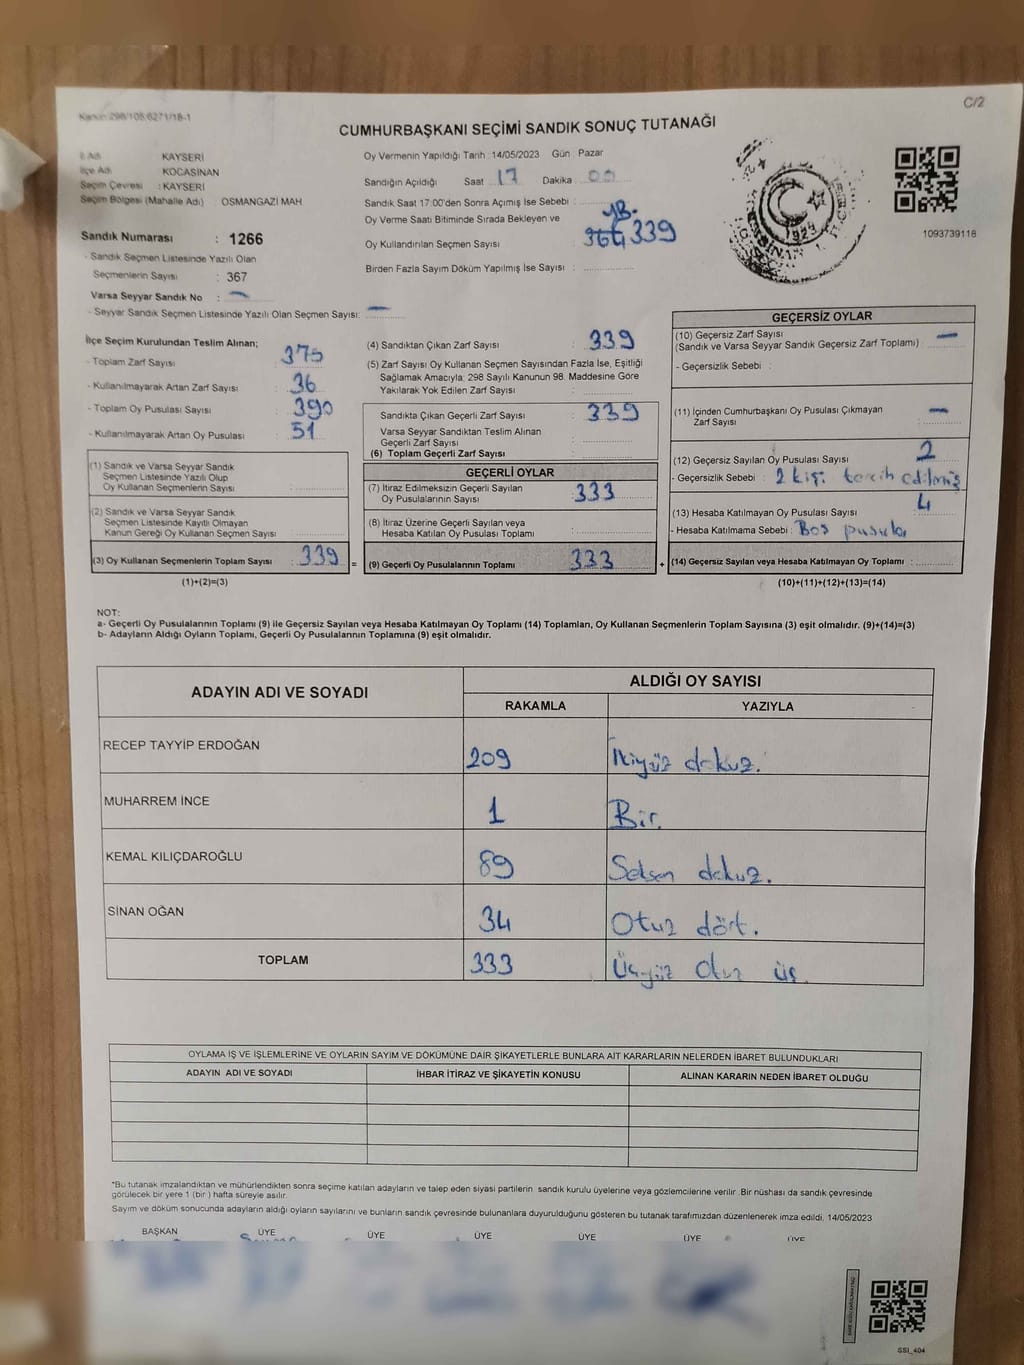 Kanun: 298/105,6271/18-1
C/2
CUMHURBAŞKANI SEÇİMİ SANDIK SONUÇ TUTANAĞI
İl Adı KAYSERİ
İlçe Adı KOCASİNAN
Seçim Çevresi : KAYSERİ
Seçim Bölgesi (Mahalle Adı) OSMANGAZİ MAH
Sandık Numarası : 1266
- Sandık Seçmen Listesinde Yazılı Olan
Seçmenlerin Sayısı : 367
Varsa Seyyar Sandık No : —
- Seyyar Sandık Seçmen Listesinde Yazılı Olan Seçmen Sayısı: —
Oy Vermenin Yapıldığı Tarih :14/05/2023 Gün : Pazar
Sandığın Açıldığı Saat : 17 Dakika : 00
Sandık Saat 17:00'den Sonra Açımış İse Sebebi :
Oy Verme Saati Bitiminde Sırada Bekleyen ve
Oy Kullandırılan Seçmen Sayısı : 339
Birden Fazla Sayım Döküm Yapılmış İse Sayısı :
1093739118
İlçe Seçim Kurulundan Teslim Alınan;
- Toplam Zarf Sayısı : 375
- Kullanılmayarak Artan Zarf Sayısı : 36
- Toplam Oy Pusulası Sayısı : 390
- Kullanılmayarak Artan Oy Pusulası : 51
(1) Sandık ve Varsa Seyyar Sandık
Seçmen Listesinde Yazılı Olup
Oy Kullanan Seçmenlerin Sayısı :
(2) Sandık ve Varsa Seyyar Sandık
Seçmen Listesinde Kayıtlı Olmayan
Kanun Gereği Oy Kullanan Seçmen Sayısı :
(3) Oy Kullanan Seçmenlerin Toplam Sayısı : 339
(1)+(2)=(3)
(4) Sandıktan Çıkan Zarf Sayısı : 339
(5) Zarf Sayısı Oy Kullanan Seçmen Sayısından Fazla İse, Eşitliği
Sağlamak Amacıyla; 298 Sayılı Kanunun 98. Maddesine Göre
Yakılarak Yok Edilen Zarf Sayısı :
Sandıkta Çıkan Geçerli Zarf Sayısı : 339
Varsa Seyyar Sandıktan Teslim Alınan
Geçerli Zarf Sayısı :
(6) Toplam Geçerli Zarf Sayısı :
GEÇERLİ OYLAR
(7) İtiraz Edilmeksizin Geçerli Sayılan
Oy Pusulalarının Sayısı : 333
(8) İtiraz Üzerine Geçerli Sayılan veya
Hesaba Katılan Oy Pusulası Toplamı :
= (9) Geçerli Oy Pusulalarının Toplamı : 333
GEÇERSİZ OYLAR
(10) Geçersiz Zarf Sayısı : —
(Sandık ve Varsa Seyyar Sandık Geçersiz Zarf Toplamı)
- Geçersizlik Sebebi :
(11) İçinden Cumhurbaşkanı Oy Pusulası Çıkmayan
Zarf Sayısı : —
(12) Geçersiz Sayılan Oy Pusulası Sayısı : 2
- Geçersizlik Sebebi : 2 kişi tercih edilmiş
(13) Hesaba Katılmayan Oy Pusulası Sayısı : 4
- Hesaba Katılmama Sebebi : Boş pusula
+ (14) Geçersiz Sayılan veya Hesaba Katılmayan Oy Toplamı :
(10)+(11)+(12)+(13)=(14)
NOT:
a- Geçerli Oy Pusulalarının Toplamı (9) ile Geçersiz Sayılan veya Hesaba Katılmayan Oy Toplamı (14) Toplamları, Oy Kullanan Seçmenlerin Toplam Sayısına (3) eşit olmalıdır. (9)+(14)=(3)
b- Adayların Aldığı Oyların Toplamı, Geçerli Oy Pusulalarının Toplamına (9) eşit olmalıdır.
ADAYIN ADI VE SOYADI
ALDIĞI OY SAYISI
RAKAMLA YAZIYLA
RECEP TAYYİP ERDOĞAN 209 İkiyüz dokuz.
MUHARREM İNCE 1 Bir.
KEMAL KILIÇDAROĞLU 89 Seksen dokuz.
SİNAN OĞAN 34 Otuz dört.
TOPLAM 333 Üçyüz otuz üç
OYLAMA İŞ VE İŞLEMLERİNE VE OYLARIN SAYIM VE DÖKÜMÜNE DAİR ŞİKAYETLERLE BUNLARA AİT KARARLARIN NELERDEN İBARET BULUNDUKLARI
ADAYIN ADI VE SOYADI İHBAR İTİRAZ VE ŞİKAYETİN KONUSU ALINAN KARARIN NEDEN İBARET OLDUĞU
*Bu tutanak imzalandıktan ve mühürlendikten sonra seçime katılan adayların ve talep eden siyasi partilerin sandık kurulu üyelerine veya gözlemcilerine verilir. Bir nüshası da sandık çevresinde
görülecek bir yere 1 (bir ) hafta süreyle asılır.
Sayım ve döküm sonucunda adayların aldığı oyların sayılarını ve bunların sandık çevresinde bulunanlara duyurulduğunu gösteren bu tutanak tarafımızdan düzenlenerek imza edildi. 14/05/2023
BAŞKAN ÜYE ÜYE ÜYE ÜYE ÜYE ÜYE
SSİ_404